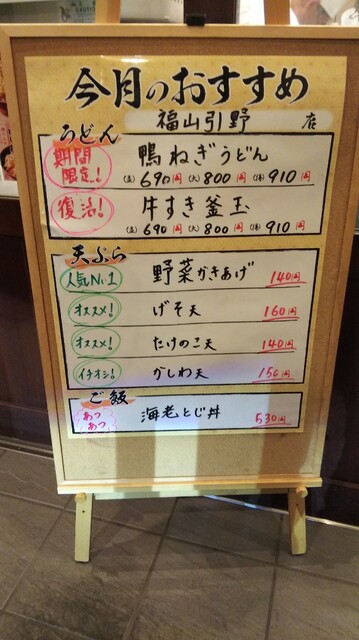 今月のおすすめ
福山引野 店
うどん
期間限定! 鴨ねぎうどん
(並)690円 (大)800円 (特)910円
復活! 牛すき釜玉
(並)690円 (大)800円 (特)910円
天ぷら
人気No.1 野菜かきあげ 140円
オススメ! げそ天 160円
オススメ! たけのこ天 140円
イチオシ! かしわ天 150円
ご飯
あつあつ 海老とじ丼 530円